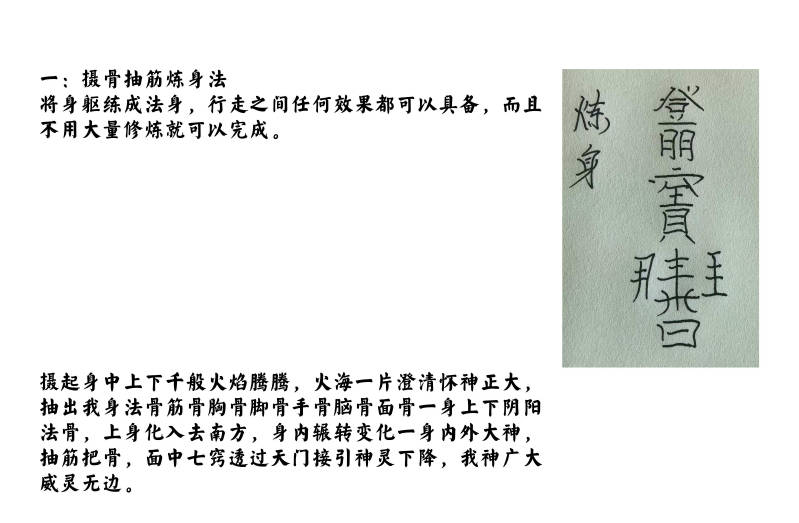 一：摄骨抽筋炼身法
将身躯练成法身，行走之间任何效果都可以具备，而且
不用大量修炼就可以完成。
炼身
摄起身中上下千般火焰腾腾，火海一片澄清怀神正大，
抽出我身法骨筋骨胸骨脚骨手骨脑骨面骨一身上下阴阳
法骨，上身化入去南方，身内辗转变化一身内外大神，
抽筋把骨，面中七窍透过天门接引神灵下降，我神广大
威灵无边。